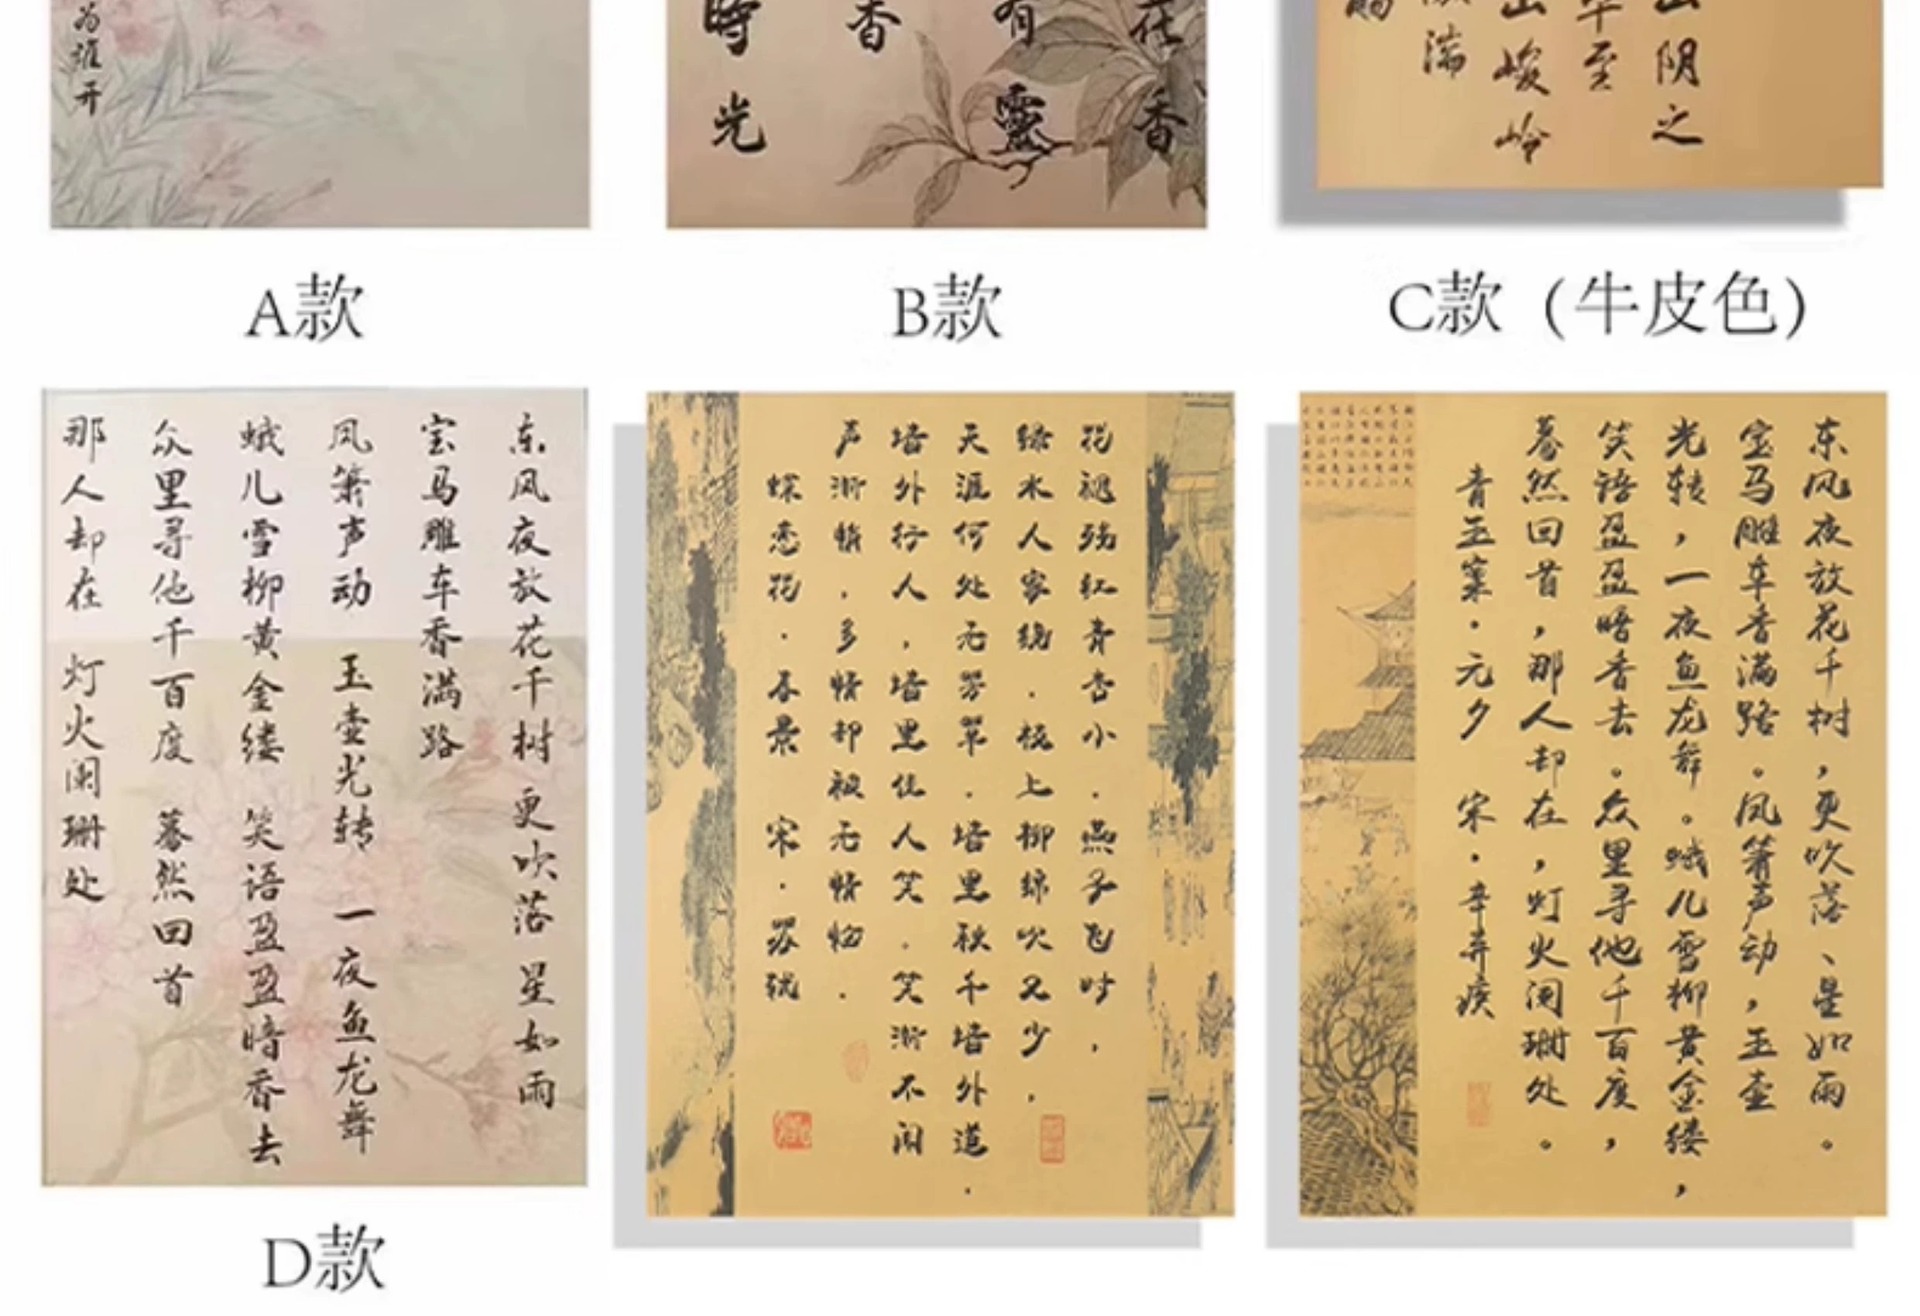 为谁开
A款
花香
有靈
香
時光
B款
山阴之
至
山峻岭
湍
C款（牛皮色）
东风夜放花千树 更吹落 星如雨
宝马雕车香满路
凤箫声动 玉壶光转 一夜鱼龙舞
蛾儿雪柳黄金缕 笑语盈盈暗香去
众里寻他千百度 蓦然回首
那人却在 灯火阑珊处
D款
花褪残红青杏小.燕子飞时,
绿水人家绕.枝上柳绵吹又少,
天涯何处无芳草.墙里秋千墙外道.
墙外行人,墙里佳人笑.笑渐不闻
声渐悄.多情却被无情恼.
蝶恋花·春景 宋·苏轼
东风夜放花千树，更吹落、星如雨。
宝马雕车香满路。凤箫声动，玉壶
光转，一夜鱼龙舞。蛾儿雪柳黄金缕，
笑语盈盈暗香去。众里寻他千百度，
蓦然回首，那人却在，灯火阑珊处。
青玉案·元夕 宋·辛弃疾